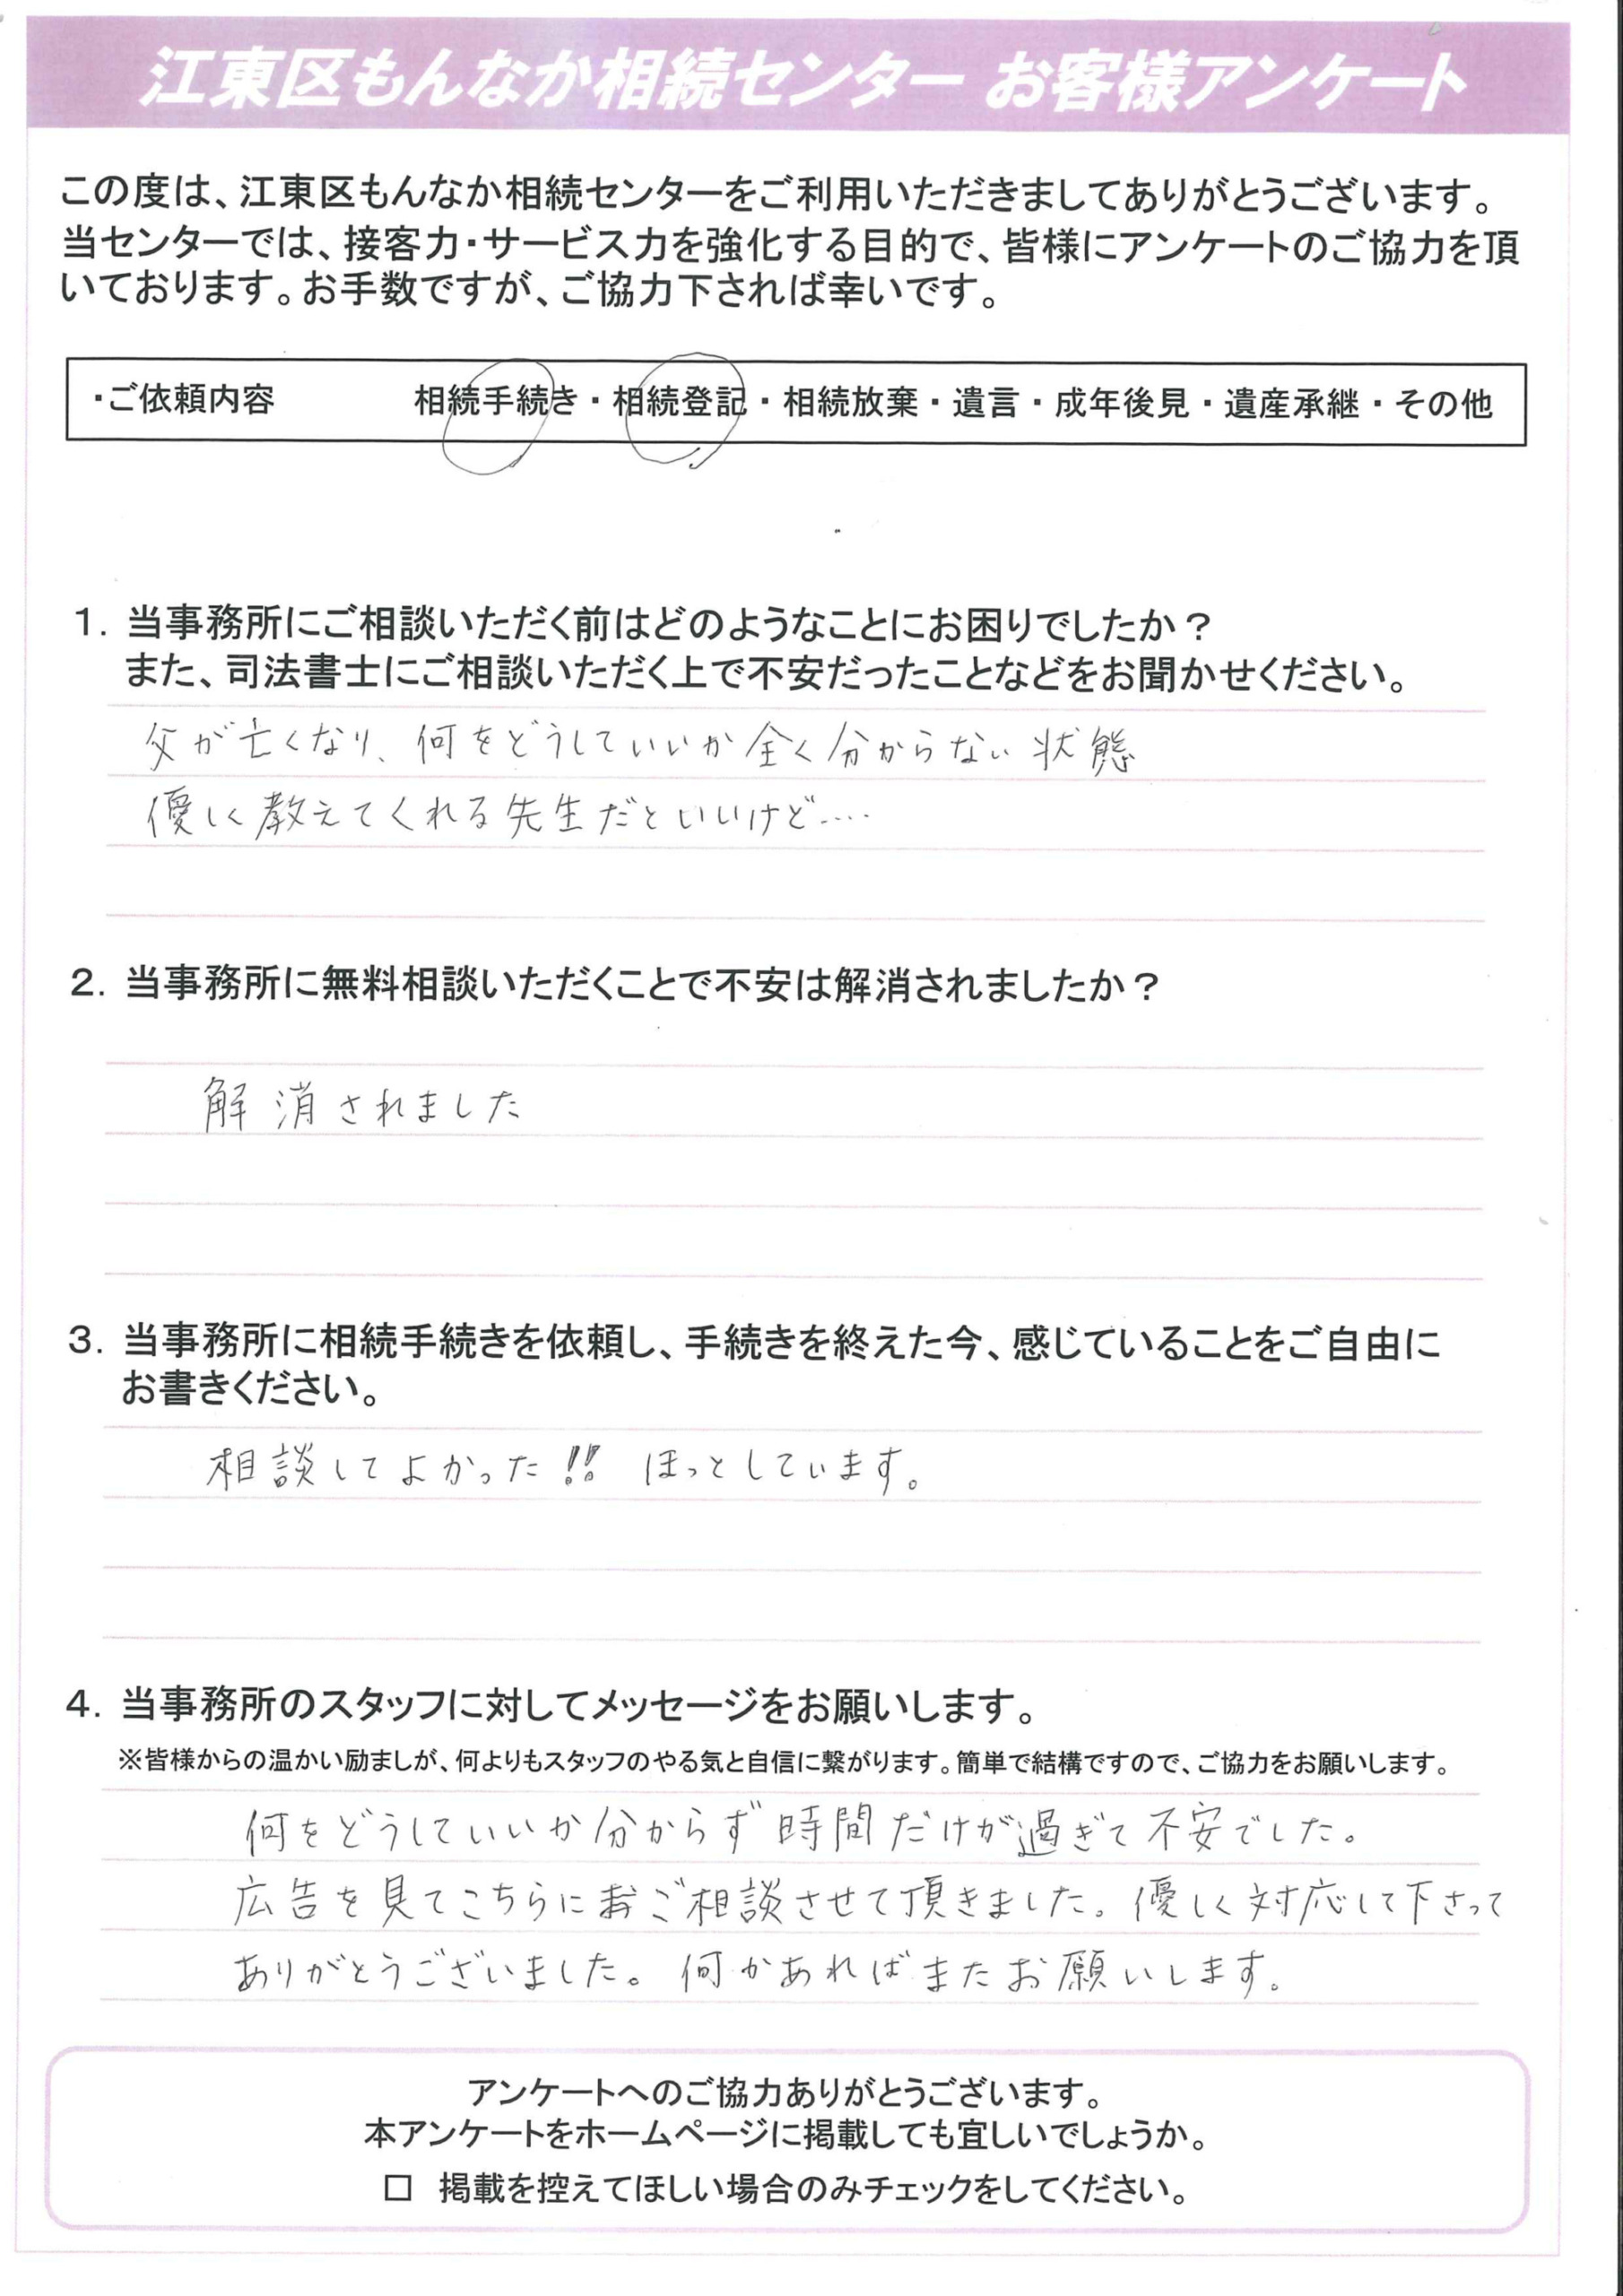 江東区もんなか相続センター お客様アンケート
この度は、江東区もんなか相続センターをご利用いただきましてありがとうございます。
当センターでは、接客力・サービス力を強化する目的で、皆様にアンケートのご協力を頂
いております。お手数ですが、ご協力下されば幸いです。
・ご依頼内容 相続手続き・相続登記・相続放棄・遺言・成年後見・遺産承継・その他
1. 当事務所にご相談いただく前はどのようなことにお困りでしたか？
また、司法書士にご相談いただく上で不安だったことなどをお聞かせください。
父が亡くなり、何をどうしていいか全く分からない状態
優しく教えてくれる先生だといいけど‥‥
2. 当事務所に無料相談いただくことで不安は解消されましたか？
解消されました
3. 当事務所に相続手続きを依頼し、手続きを終えた今、感じていることをご自由に
お書きください。
相談してよかった!! ほっとしています。
4. 当事務所のスタッフに対してメッセージをお願いします。
※皆様からの温かい励ましが、何よりもスタッフのやる気と自信に繋がります。簡単で結構ですので、ご協力をお願いします。
何をどうしていいか分からず時間だけが過ぎて不安でした。
広告を見てこちらにご相談させて頂きました。優しく対応して下さって
ありがとうございました。何かあればまたお願いします。
アンケートへのご協力ありがとうございます。
本アンケートをホームページに掲載しても宜しいでしょうか。
□ 掲載を控えてほしい場合のみチェックをしてください。